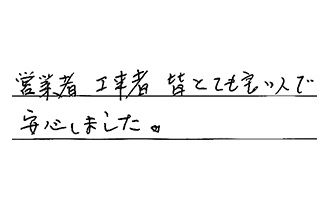 営業者 工事者 皆とても良い人で
安心しました。